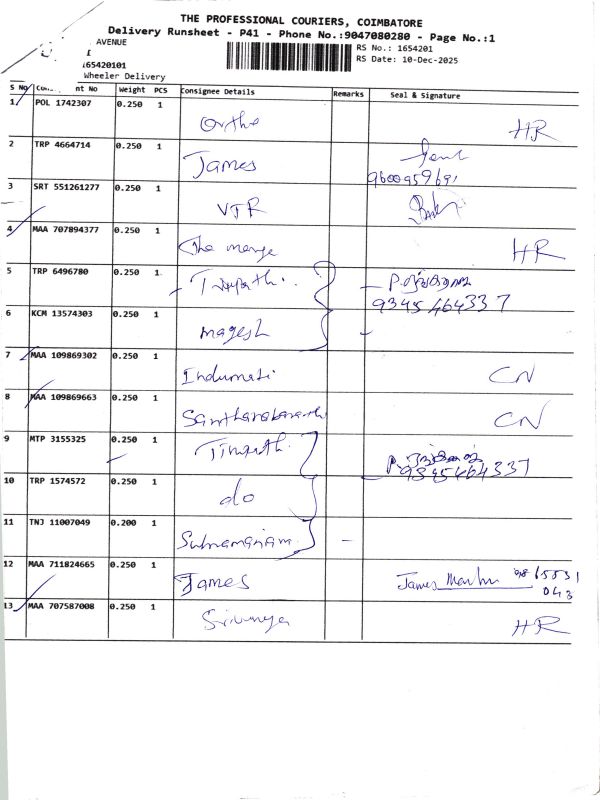 THE PROFESSIONAL COURIERS, COIMBATORE
Delivery Runsheet - P41 - Phone No.:9047080280 - Page No.:1
AVENUE
RS No.: 1654201
RS Date: 10-Dec-2025
165420101
Wheeler Delivery
S No nt No Weight PCS Consignee Details Remarks Seal & Signature
1 POL 1742307 0.250 1
HR
2 TRP 4664714 0.250 1 James
9600959691
3 SRT 551261277 0.250 1 VJR
4 MAA 707894377 0.250 1 The HR
5 TRP 6496780 0.250 1
9345464337
6 KCM 13574303 0.250 1 magesh
7 MAA 109869302 0.250 1 Indumati CN
8 MAA 109869663 0.250 1 CN
9 MTP 3155325 0.250 1
9345464337
10 TRP 1574572 0.250 1 do
11 TNJ 11007049 0.200 1
12 MAA 711824665 0.250 1 James James
043
13 MAA 707587008 0.250 1 HR